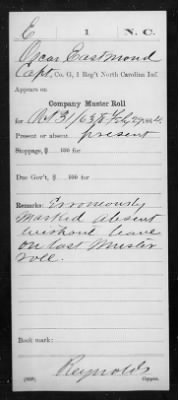 E 1 N. C.
Oscar Eastmond
Capt., Co. G, 1 Reg't North Carolina Inf.
Appears on
Company Muster Roll
for Oct 31/63 to Feby 29, 1864.
Present or absent, present
Stoppage, $ 100 for
Due Gov't, $ 100 for
Remarks: Erroneously
marked absent
without leave
on last Muster
roll.
Book mark:
Reynolds
Copyist.